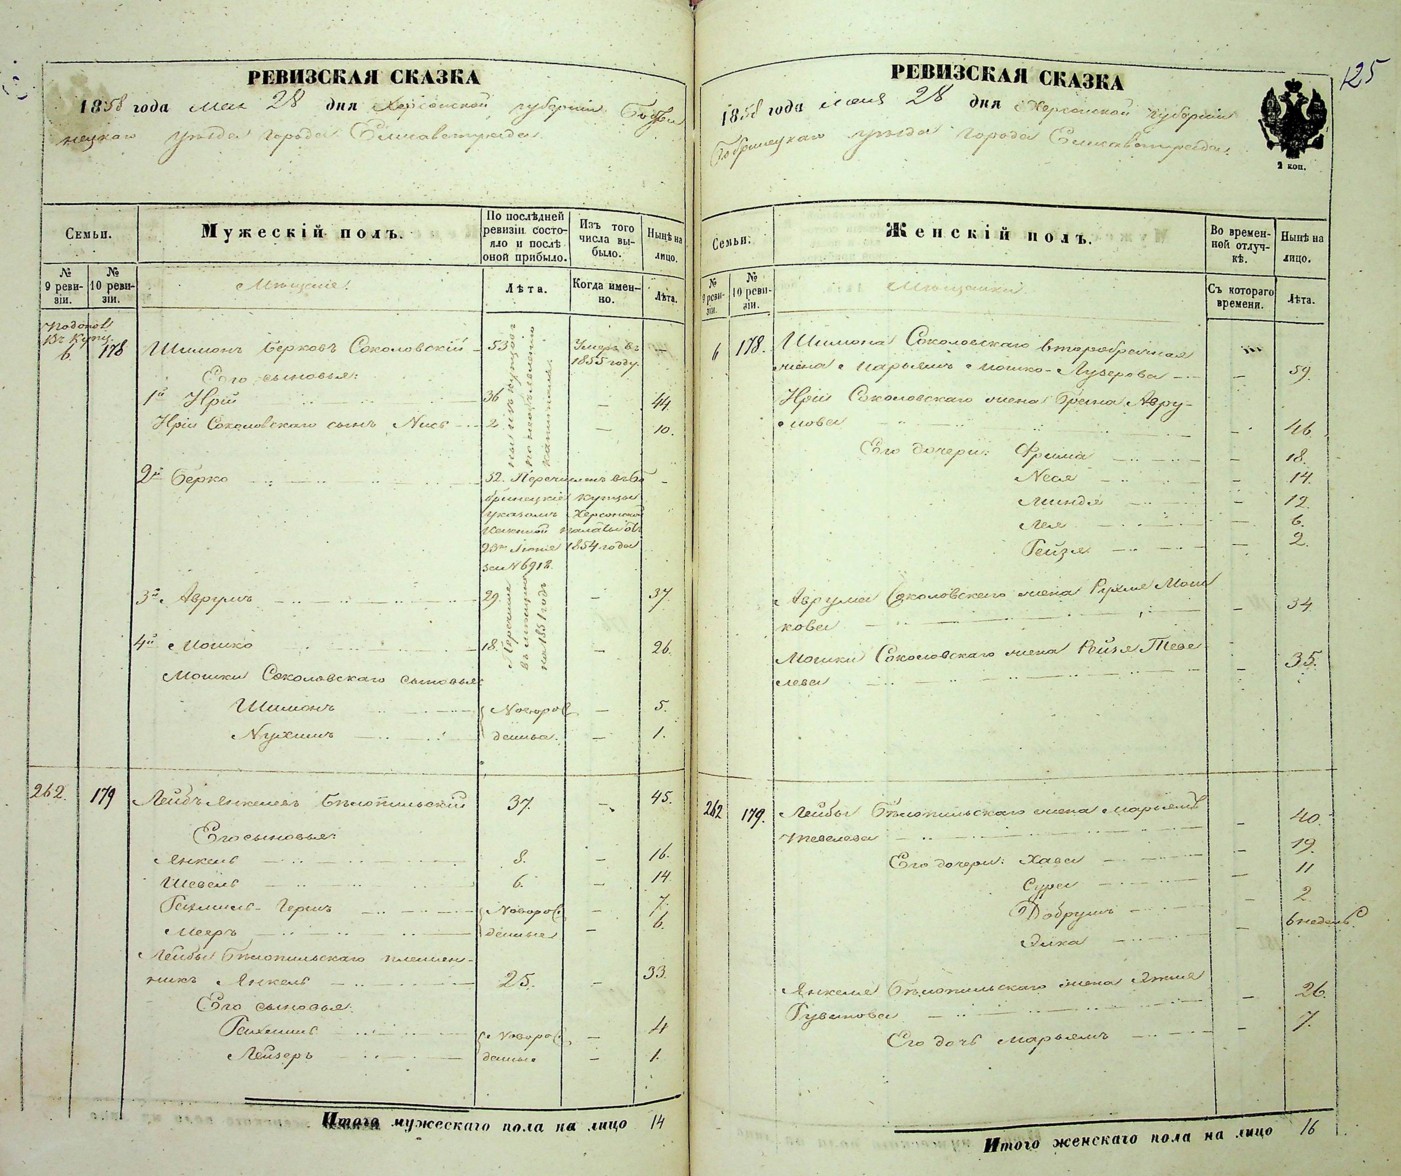 РЕВИЗСКАЯ СКАЗКА
1858 года Мая 28 дня Херсонской губернии Бобри
нецкаго уѣзда города Елисаветграда.
Семьи.
Мужескій полъ.
По послѣдней ревизіи состояло и послѣ оной прибыло.
Изъ того числа выбыло.
Нынѣ на лицо.
№ 9 ревизіи.
№ 10 ревизіи.
Мѣщане:
Лѣта.
Когда именно.
Лѣта.
6. 178 Шимонъ Берковъ Соколовскій 53 Умеръ въ 1855 году. —
Его сыновья:
1й Юрій 36 — 44.
Юрій Соколовскаго сынъ 2 — 10.
2й Берко 52. Перечисленъ въ Бо
бринецкіе купцы
указомъ Херсонской
Казенной палаты отъ
1854 года
за № 6918.
3й Аврумъ 29. — 37.
Перечислены въ мѣщане на 1851 годъ
4й Мошко 18. — 26.
Мошки Соколовскаго сыновья:
Шимонъ Новорож — 5.
Нухимъ денные. — 1.
262. 179 Лейбъ Янкелевъ Бѣлопильскій 37. — 45.
Его сыновья:
Янкель 8. — 16.
Шевель 6. — 14.
Рахмиль-Гершъ Новорож — 7.
Мееръ денные — 6.
Лейбы Бѣлопильскаго племян-
никъ Янкель 25. — 33.
Его сыновья:
Рахмиль Новорож — 4
Лейзеръ денные — 1.
Итого мужескаго пола на лицо 14
125
РЕВИЗСКАЯ СКАЗКА
1858 года Мая 28 дня Херсонской губерніи
Бобринецкаго уѣзда города Елисаветграда.
2 коп.
Семьи:
Женскій полъ.
Во временной отлучкѣ.
Нынѣ на лицо.
№ 9 ревизіи.
№ 10 ревизіи.
Мѣщанки
Съ котораго времени.
Лѣта.
6 178. Шимона Соколовскаго второбрачная
жена Марьямъ Мошко-Лузерова — 59.
Юрій Соколовскаго жена Авру-
мова — 46
Его дочери: Фрима — 18.
Неся — 14.
Миндя — 12.
Лея — 6.
Рейзя — 2.
Аврума Соколовскаго жена Мош
кова — 34
Мошки Соколовскаго жена Рейзя Теве
лева — 35.
262 179. Лейбы Бѣлопильскаго жена Марьямъ
Тевелева — 40.
Его дочери: Хава — 19.
Сура 11
Добрушъ — 2.
Элка — 6 недель
Янкеля Бѣлопильскаго жена
Рувинова — 26.
Его дочь Марьямъ — 7.
Итого женскаго пола на лицо 16